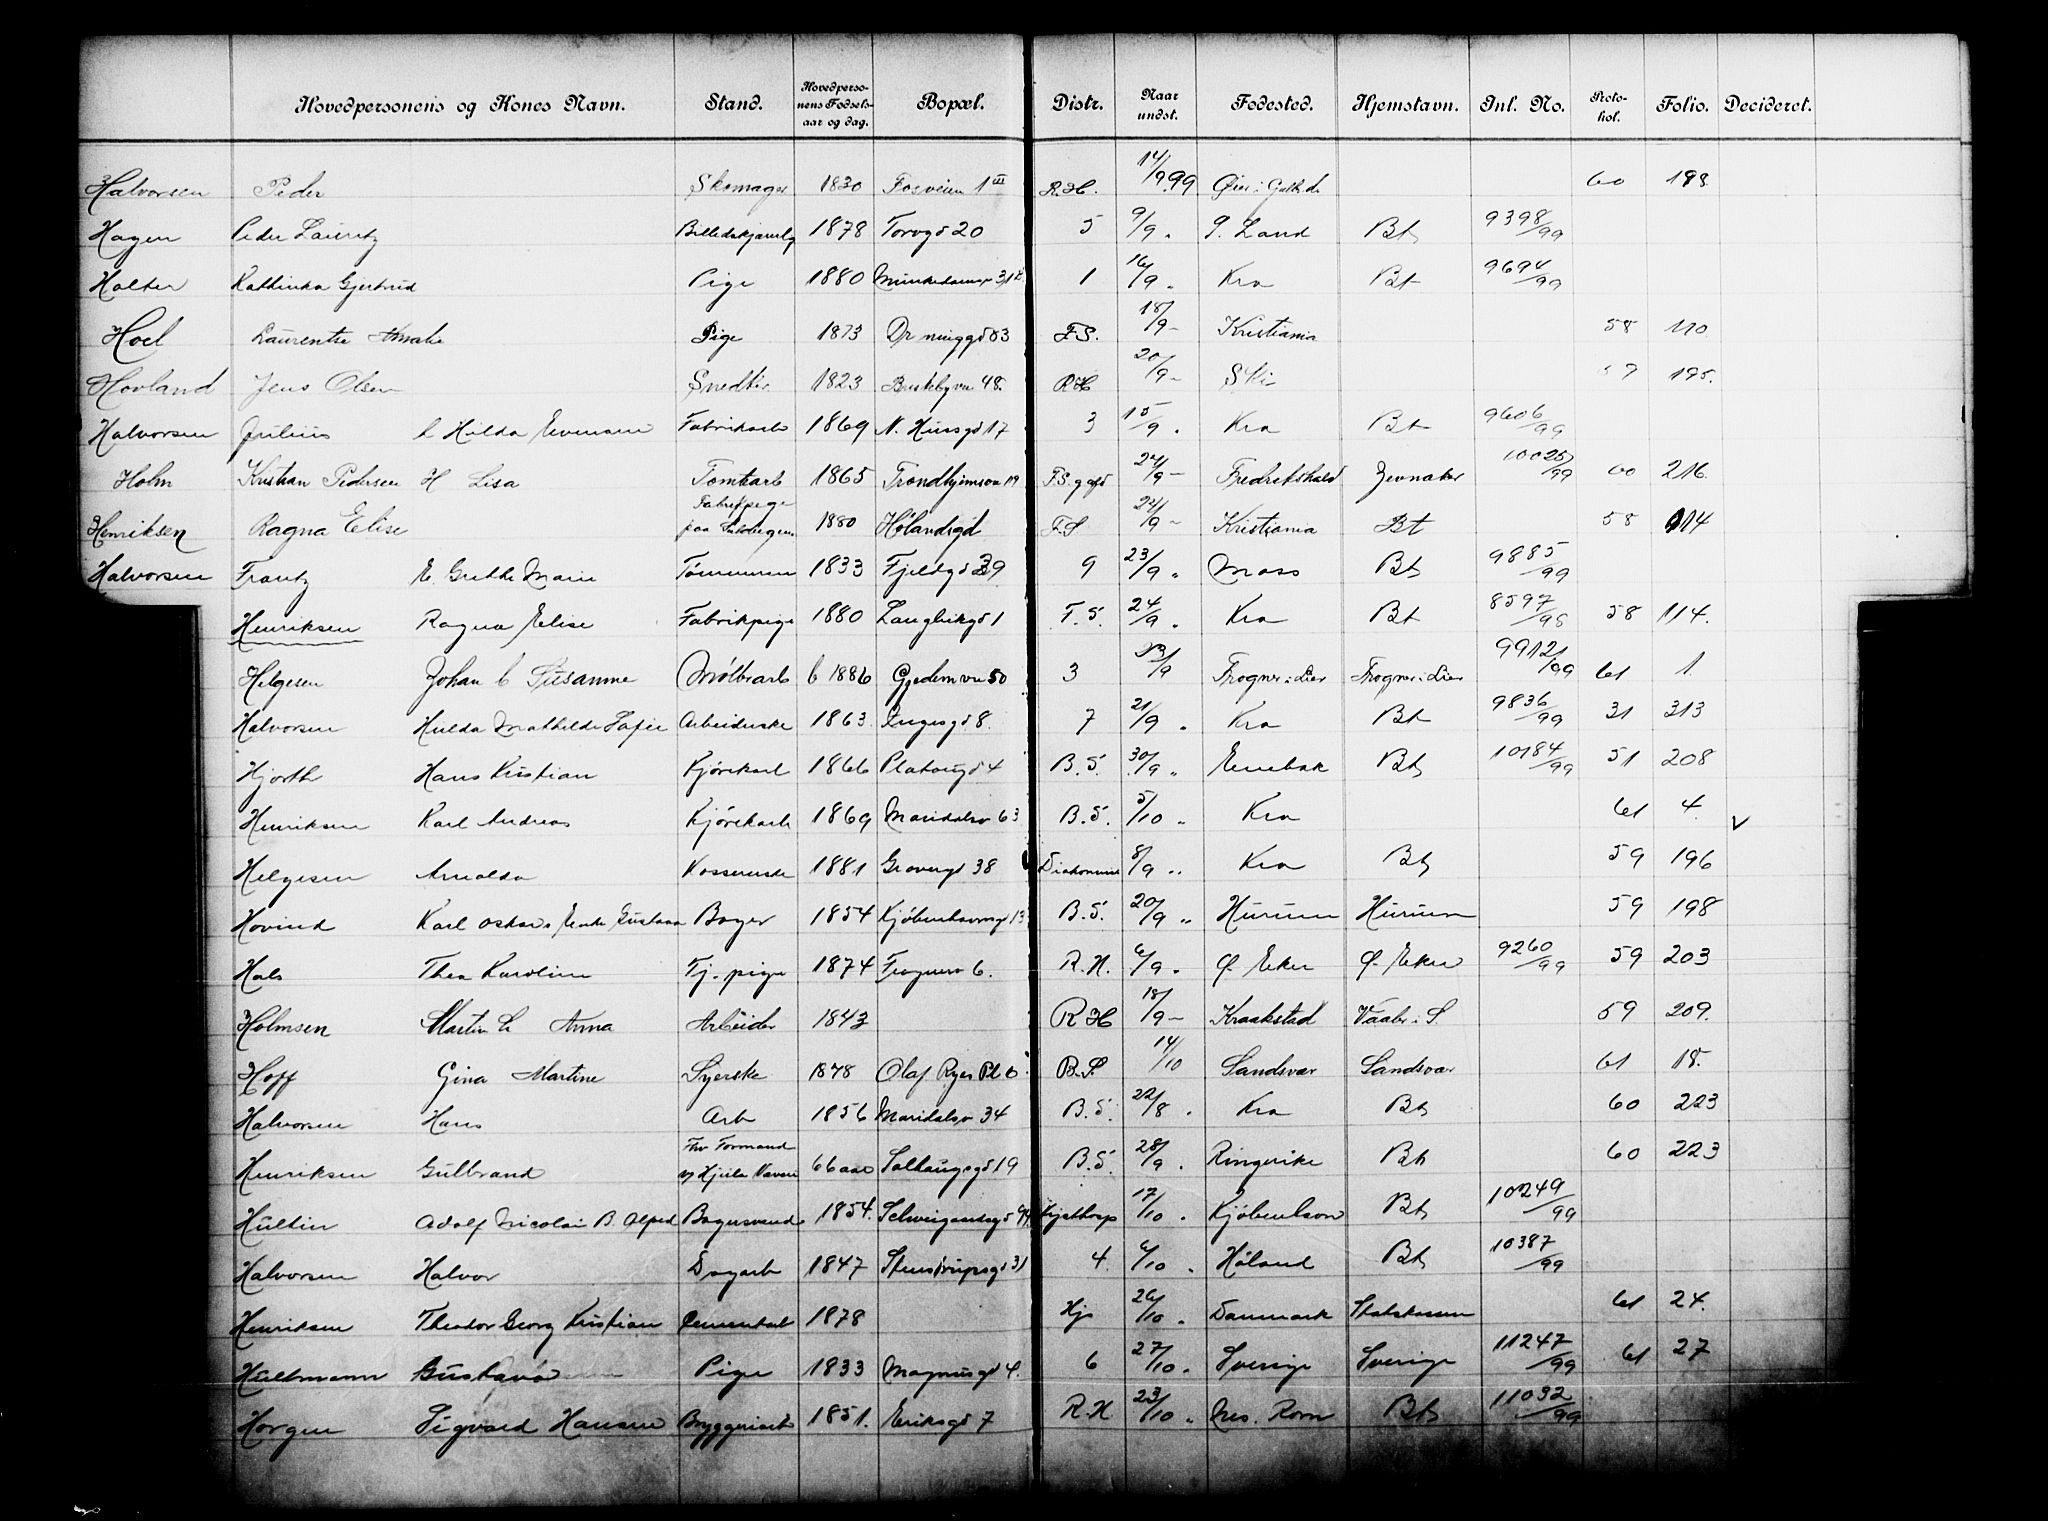 Hovedpersonens og Kones Navn. Stand. Hovedperso-nens Fødsels-aar og dag. Bopæl. Distr. Naar undst. Fødested. Hjemstavn. Inl. No. Proto-kol. Folio. Decideret.
Halvorsen Peder Skomager 1830 Fosveien 1 III R.H. 14/9.99 60 193.
Hagen Peder Lauritz 1878 Torvgd 20 5 9/9 „ Land Bt 9398/99
Halter Kathinka Gjertrud Pige 1880 Munkedamsv 1 16/9 „ Kra Bt 9694/99
Hoel Laurentse Amalie Pige 1873 F.S. 18/9 – Kristiania 58 110
Hovland Jens Olsen Snedker 1823 48. R.H 20/9 – Ski 195.
Halvorsen Julius h Hilda Evensen Fabrikarb 1869 N. Hussgd 17 3 15/9 „ Kra Bt 9606/99
Holm Kristian Pedersen H Lisa Tomtearb 1865 Trondhjemsv 119 F.S. 24/9 – Fredrikshald Jevnaker 10025/99 60 216.
Henriksen Ragna Elise Fabrikpige paa 1880 Hølandsgd F.S 24/9 – Kristiania Bt 58 114
Halvorsen Frantz E. Grethe Marie Tømmerm 1833 Fjeldgd 39 9 23/9 „ Moss Bt 9885/99
Henriksen Ragna Elise Fabrikpige 1880 Langleikgd 1 F.S. 24/9 „ Kra Bt 8597/98 58 114.
Helgesen Johan h Susanne Mølbearb 1886 50 3 23/9 Frogner i Lier Frogner i Lier 9912/99 61 1.
Halvorsen Hulda Mathilde Sofie Arbeiderske 1863. Ingesgd 8. 7 21/9 „ Kra Bt 9836/99 31 313
Hjorth Hans Kristian Kjørekarl 1866 Platougd 4 B.S. 30/9 „ Enebak Bt 10184/99 51 208
Henriksen Karl Andreas Kjørekarl 1869 Maridalsv 63 B.S. 5/10 „ Kra 61 4. V
Helgesen Arnolda 1881 38 8/9 „ Kra Bt 59 196
Hovind Karl Oskars Enke Gustava Bager 1854 Kjøbenhavnsgd 13 B.S. 20/9 „ Hurum Hurum 59 198
Hals Thea Karoline Tj. pige 1874 Frognerv 6. R.H. 6/9 „ Ø. Eker Ø. Eker 9260/99 59 203
Holmsen Martin h Anna Arbeider 1843 R H 18/9 – Kraakstad Vaaler i S. 59 209.
Hoff Gina Martine Syerske 1878 Olaf Ryes Pl 6 B.S. 14/10 Sandsvær Sandsvær 61 18.
Halvorsen Hans Arb 1856 Maridalsv 34 B.S. 22/8 „ Kra Bt 60 223
Henriksen Gulbrand Fhv Formand v/ 66 aar 19 B.S. 28/9 „ Ringerike Bt 60 223
Hultin Adolf Nicolai B. Alfred Bagersvend 1854. Schweigaardsgd 94 17/10 „ Kjøbenhavn Bt 10249/99
Halvorsen Halvor Dagarb 1847 Stenstrupsgd 31 4. 6/10 „ Høland Bt 10387/99
Henriksen Theodor Georg Kristian Cementarb 1878 Hjs 26/10 „ Danmark Statskassen 61 24.
Hultmann Gustava Pige 1833 Magnusgd 4. 6 27/10 „ Sverige Sverige 11247/99 61 27
Horgen Sigvard Hansen Bryggeriarb 1851. Eriksgd 7 R.H 23/10 „ Nes. Rom Bt 11032/99